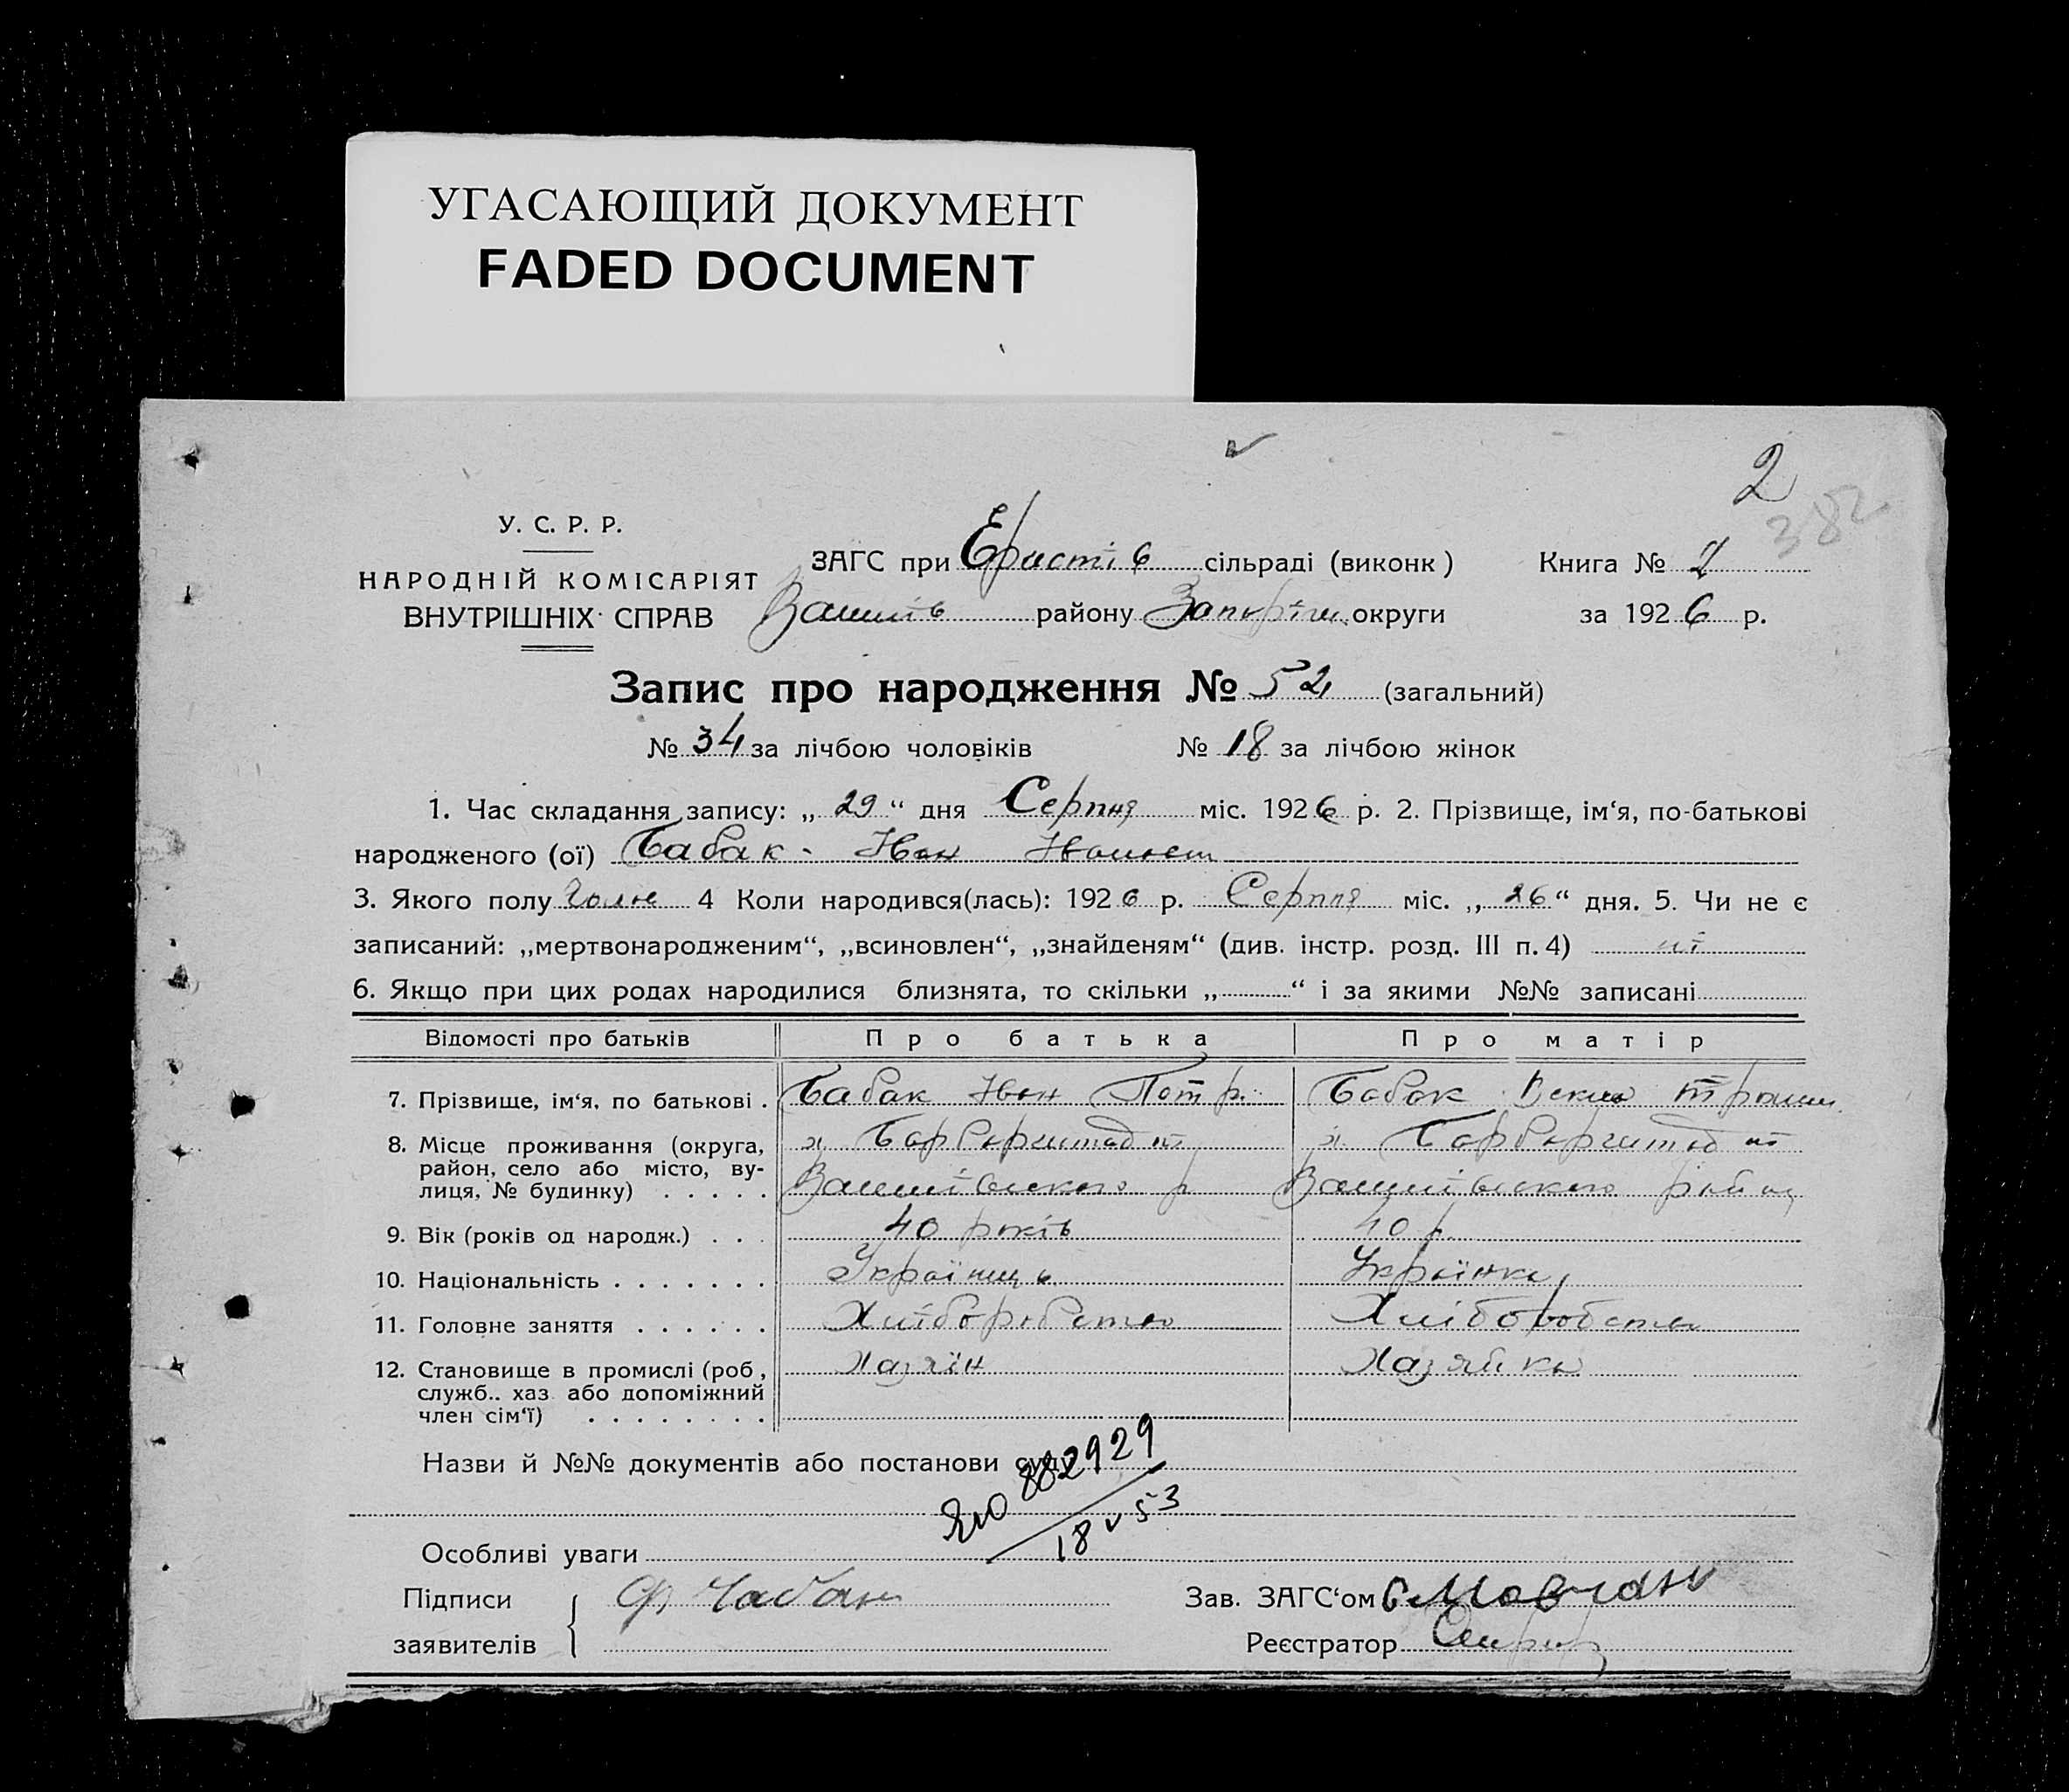 УГАСАЮЩИЙ ДОКУМЕНТ
FADED DOCUMENT
2
382
У. С. Р. Р.
НАРОДНІЙ КОМІСАРІЯТ
ВНУТРІШНІХ СПРАВ
ЗАГС при Ерастів сільраді (виконк)
району округи
Книга № 2
за 1926 р.
Запис про народження № 52 (загальний)
№ 34 за лічбою чоловіків № 18 за лічбою жінок
1. Час складання запису: „ 29 “ дня Серпня міс. 1926 р. 2. Прізвище, ім‘я, по-батькові
народженого (ої) Бабак Іван
3. Якого полу 4 Коли народився(лась): 1926 р. Серпня міс. „ 26 “ дня. 5. Чи не є
записаний: „мертвонародженим“, „всиновлен“, „знайденям“ (див. інстр. розд. III п. 4) ні
6. Якщо при цих родах народилися близнята, то скільки „ “ і за якими №№ записані
Відомості про батьків Про батька Про матір
7. Прізвище, ім‘я, по батькові . Бабак Іван Петр. Бабак
8. Місце проживання (округа,
район, село або місто, ву-
лиця, № будинку) . . . . .
9. Вік (років од народж.) . . . 40 років 40 р.
10. Національність . . . . . . . Українець Українка
11. Головне заняття . . . . . . Хліборобство Хліборобство
12. Становище в промислі (роб , Хазяїн Хазяйка
служб.. хаз або допоміжний
член сім‘ї) . . . . . . . .
Назви й №№ документів або постанови суду
882929
18 V 53
Особливі уваги
Підписи
заявителів
Ф. Чабан
Зав. ЗАГС‘ом Мовчан
Реєстратор